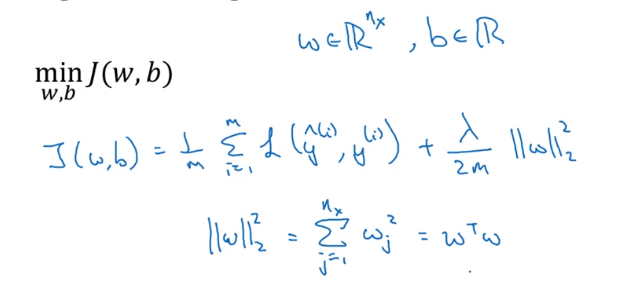 w ∈ ℝⁿˣ , b ∈ ℝ
min J(w, b)
w,b
J(w,b) = 1/m Σᵢ₌₁ᵐ ℒ(ŷ⁽ⁱ⁾, y⁽ⁱ⁾) + λ/2m ||w||₂²
||w||₂² = Σⱼ₌₁ⁿˣ wⱼ² = wᵀw